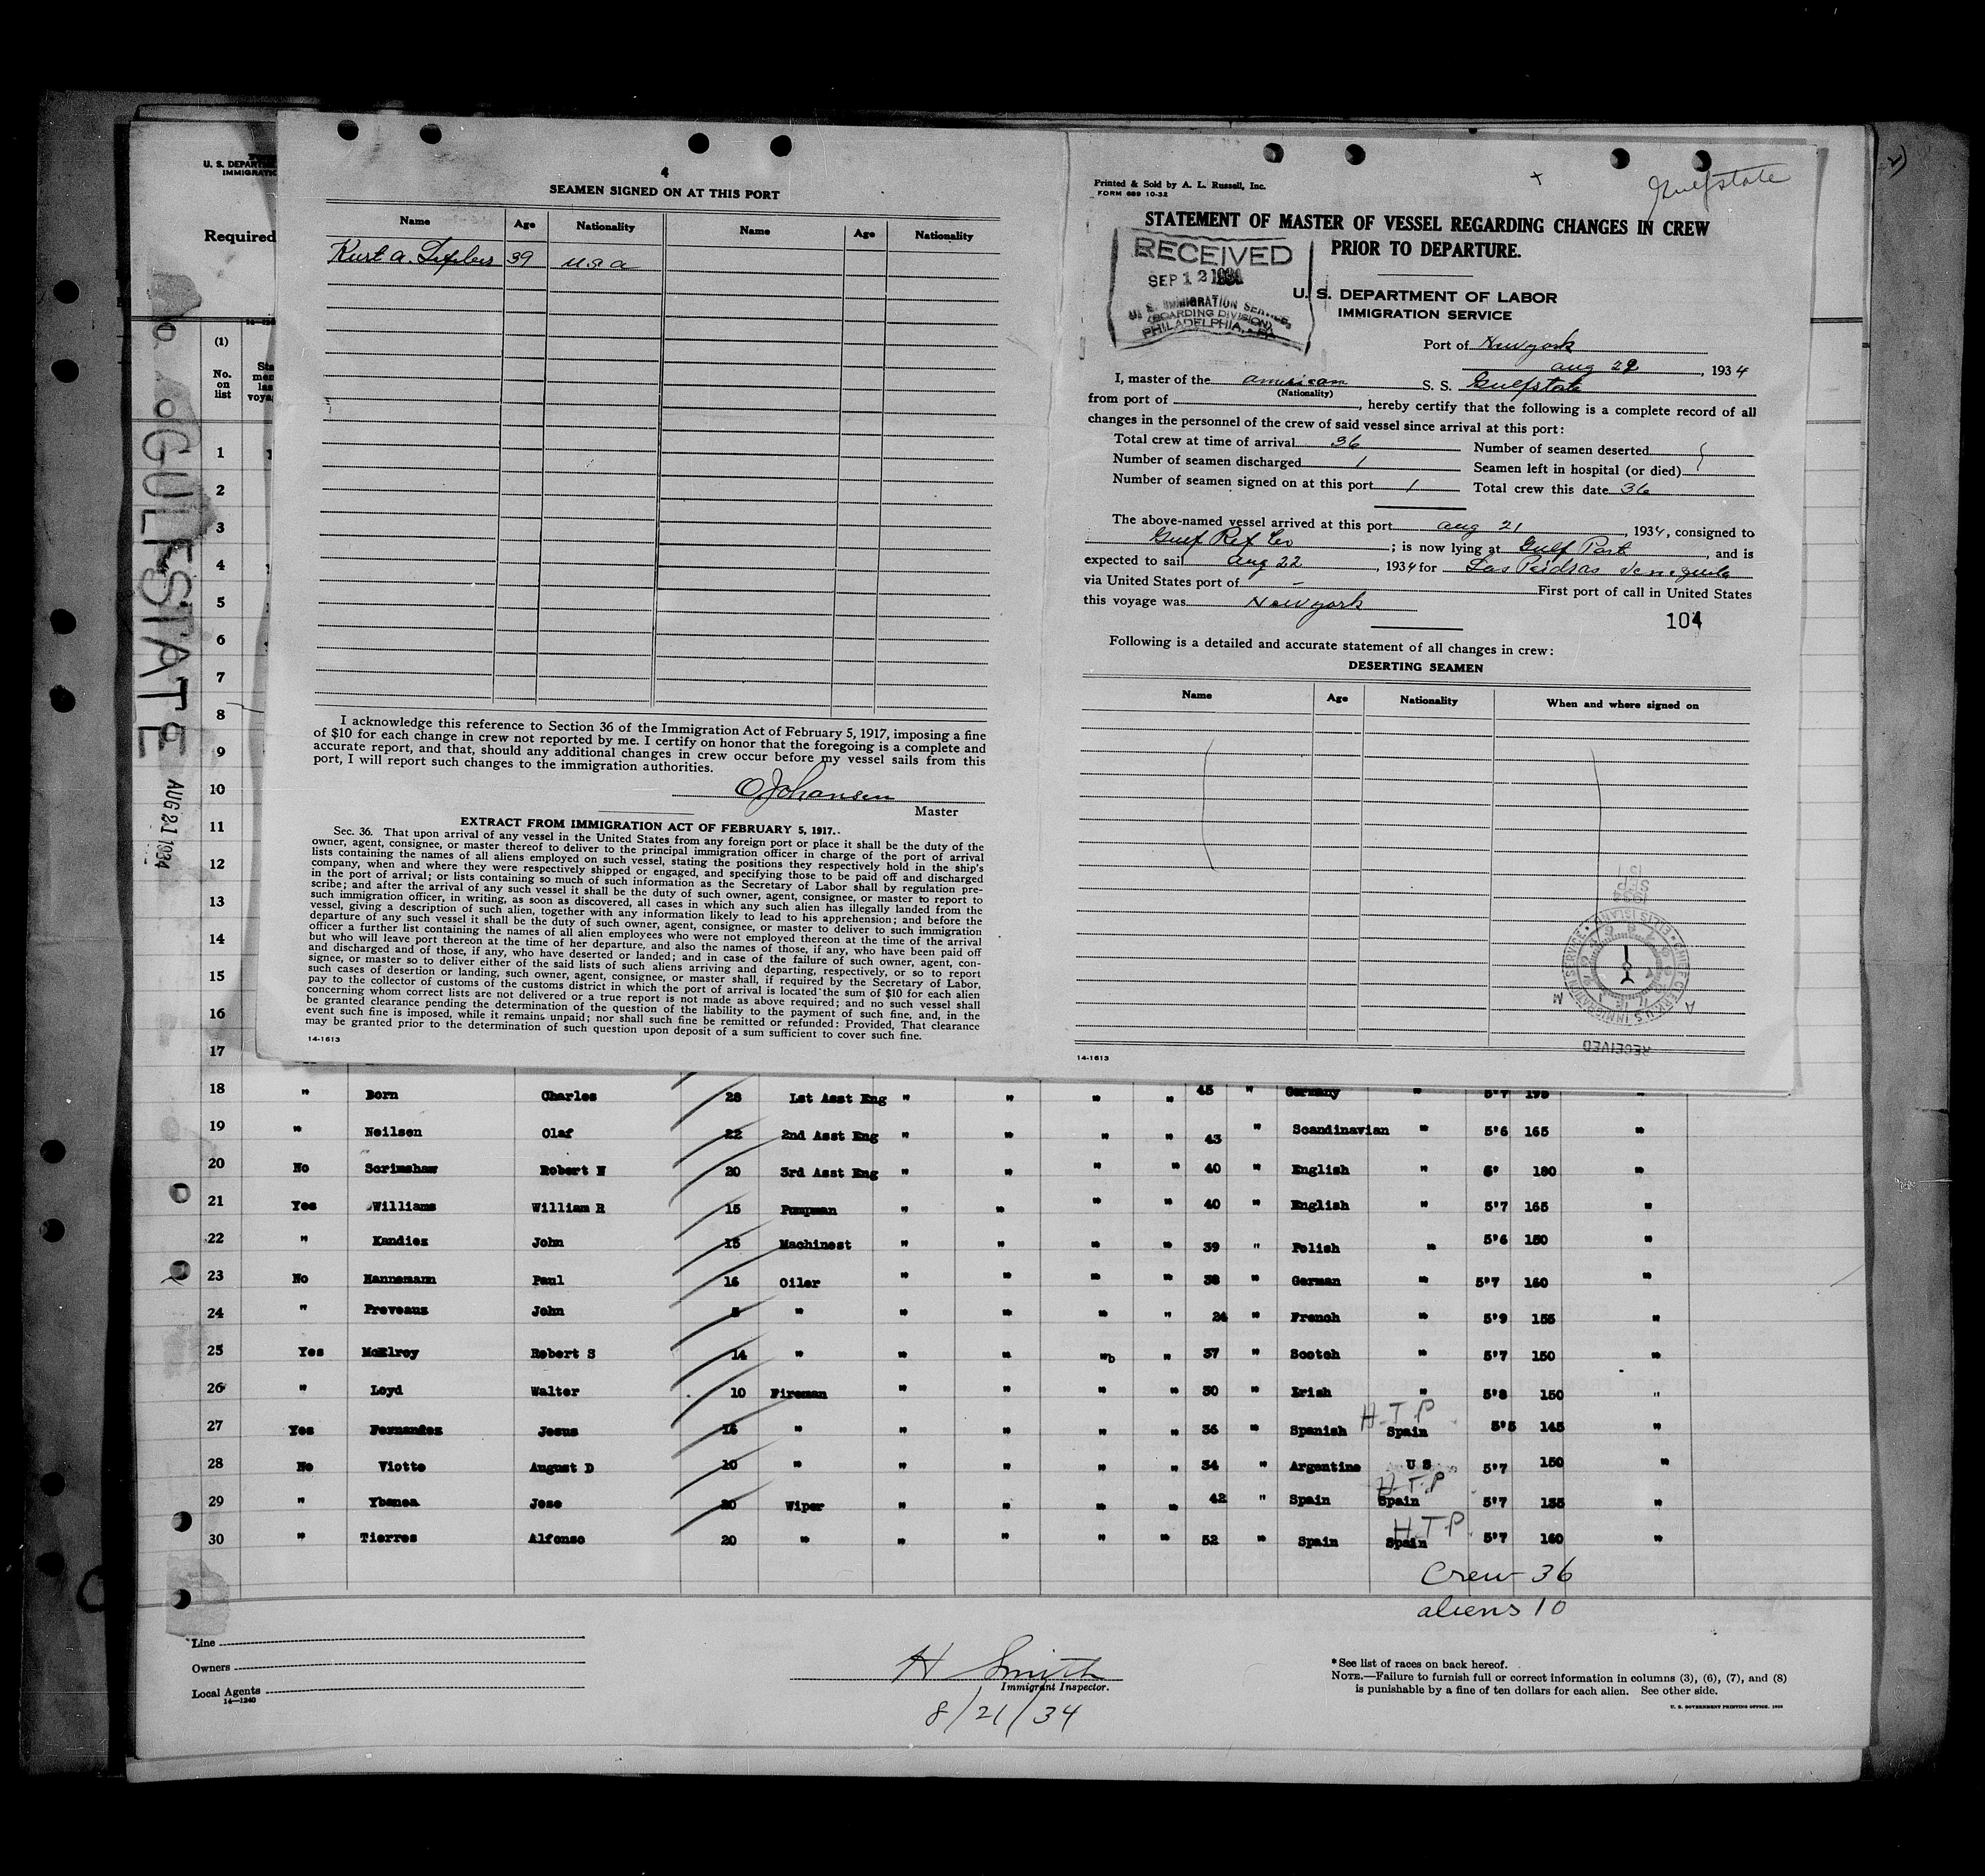 4
SEAMEN SIGNED ON AT THIS PORT
Name Age Nationality Name Age Nationality
Kurt A. 39 U.S.A
I acknowledge this reference to Section 36 of the Immigration Act of February 5, 1917, imposing a fine
of $10 for each change in crew not reported by me. I certify on honor that the foregoing is a complete and
accurate report, and that, should any additional changes in crew occur before my vessel sails from this
port, I will report such changes to the immigration authorities.
O Johansen
Master
EXTRACT FROM IMMIGRATION ACT OF FEBRUARY 5, 1917.
Sec. 36. That upon arrival of any vessel in the United States from any foreign port or place it shall be the duty of the
owner, agent, consignee, or master thereof to deliver to the principal immigration officer in charge of the port of arrival
lists containing the names of all aliens employed on such vessel, stating the positions they respectively hold in the ship's
company, when and where they were respectively shipped or engaged, and specifying those to be paid off and discharged
in the port of arrival; or lists containing so much of such information as the Secretary of Labor shall by regulation pre-
scribe; and after the arrival of any such vessel it shall be the duty of such owner, agent, consignee, or master to report to
such immigration officer, in writing, as soon as discovered, all cases in which any such alien has illegally landed from the
vessel, giving a description of such alien, together with any information likely to lead to his apprehension; and before the
departure of any such vessel it shall be the duty of such owner, agent, consignee, or master to deliver to such immigration
officer a further list containing the names of all alien employees who were not employed thereon at the time of the arrival
but who will leave port thereon at the time of her departure, and also the names of those, if any, who have been paid off
and discharged and of those, if any, who have deserted or landed; and in case of the failure of such owner, agent, con-
signee, or master so to deliver either of the said lists of such aliens arriving and departing, respectively, or so to report
such cases of desertion or landing, such owner, agent, consignee, or master shall, if required by the Secretary of Labor,
pay to the collector of customs of the customs district in which the port of arrival is located the sum of $10 for each alien
concerning whom correct lists are not delivered or a true report is not made as above required; and no such vessel shall
be granted clearance pending the determination of the question of the liability to the payment of such fine, and, in the
event such fine is imposed, while it remains unpaid; nor shall such fine be remitted or refunded: Provided, That clearance
may be granted prior to the determination of such question upon deposit of a sum sufficient to cover such fine.
14-1613
Printed & Sold by A. L. Russell, Inc.
FORM 689 10-32
Gulfstate
STATEMENT OF MASTER OF VESSEL REGARDING CHANGES IN CREW
PRIOR TO DEPARTURE.
RECEIVED
SEP 12 1934
U. S. IMMIGRATION SERVICE,
(BOARDING DIVISION)
PHILADELPHIA, PA
U. S. DEPARTMENT OF LABOR
IMMIGRATION SERVICE
Port of New york
aug 22, 1934
I, master of the american S. S. Gulfstate
(Nationality)
from port of , hereby certify that the following is a complete record of all
changes in the personnel of the crew of said vessel since arrival at this port:
Total crew at time of arrival 36 Number of seamen deserted
Number of seamen discharged 1 Seamen left in hospital (or died)
Number of seamen signed on at this port 1 Total crew this date 36
The above-named vessel arrived at this port aug 21, 1934, consigned to
Gulf Ref Co ; is now lying at Gulf Port, and is
expected to sail aug 22, 1934 for Las Peidras Venezuela
via United States port of - First port of call in United States
this voyage was New york
104
Following is a detailed and accurate statement of all changes in crew:
DESERTING SEAMEN
Name Age Nationality When and where signed on
1934
SEP
RECEIVED
CHIEF CLERK U.S. IMMIGRATION SERVICE • ELLIS ISLAND •
A M
14-1613
U. S. DEPART
IMMIGRATIO
Required
(1)
No. on list
GULFSTATE
AUG 21 1934
1
2
3
4
5
6
7
8
9
10
11
12
13
14
15
16
17
18 " Born Charles 28 1st Asst Eng " " " " 45 " Germany " 5'7 175 "
19 " Neilsen Olaf 22 2nd Asst Eng " " " " 43 " Scandinavian " 5'6 165 "
20 No Scrimshaw Robert N 20 3rd Asst Eng " " " " 40 " English " 6' 180 "
21 Yes Williams William R 15 Pumpman " " " " 40 " English " 5'7 165 "
22 " Kandiez John 15 Machinest " " " " 39 " Polish " 5'6 150 "
23 No Hannemann Paul 16 Oiler " " " " 38 " German " 5'7 160 "
24 " Preveaux John 5 " " " " " 24 " French " 5'9 155 "
25 Yes McElroy Robert S 14 " " " " " 37 " Scotch " 5'7 150 "
26 " Loyd Walter 10 Fireman " " " " 30 " Irish " 5'8 150 "
27 Yes Fernandez Jesus 16 " " " " " 36 " Spanish H.T.P. Spain 5'5 145 "
28 No Viotto August D 10 " " " " " 34 " Argentine U S 5'7 150 "
29 " Ybanea Jose 20 Wiper " " " " 42 " Spain H.T.P Spain 5'7 135 "
30 " Tierres Alfonso 20 " " " " " 52 " Spain H.T.P. Spain 5'7 160 "
Crew 36
aliens 10
Line
Owners
Local Agents
14-1240
H Smith
Immigrant Inspector.
8/21/34
*See list of races on back hereof.
NOTE.—Failure to furnish full or correct information in columns (3), (6), (7), and (8)
is punishable by a fine of ten dollars for each alien. See other side.
U. S. GOVERNMENT PRINTING OFFICE